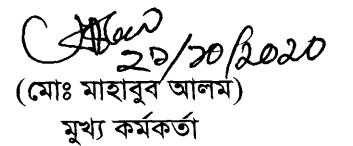 ২১/১০/২০২০
(মোঃ মাহাবুব আলম)
মুখ্য কর্মকর্তা